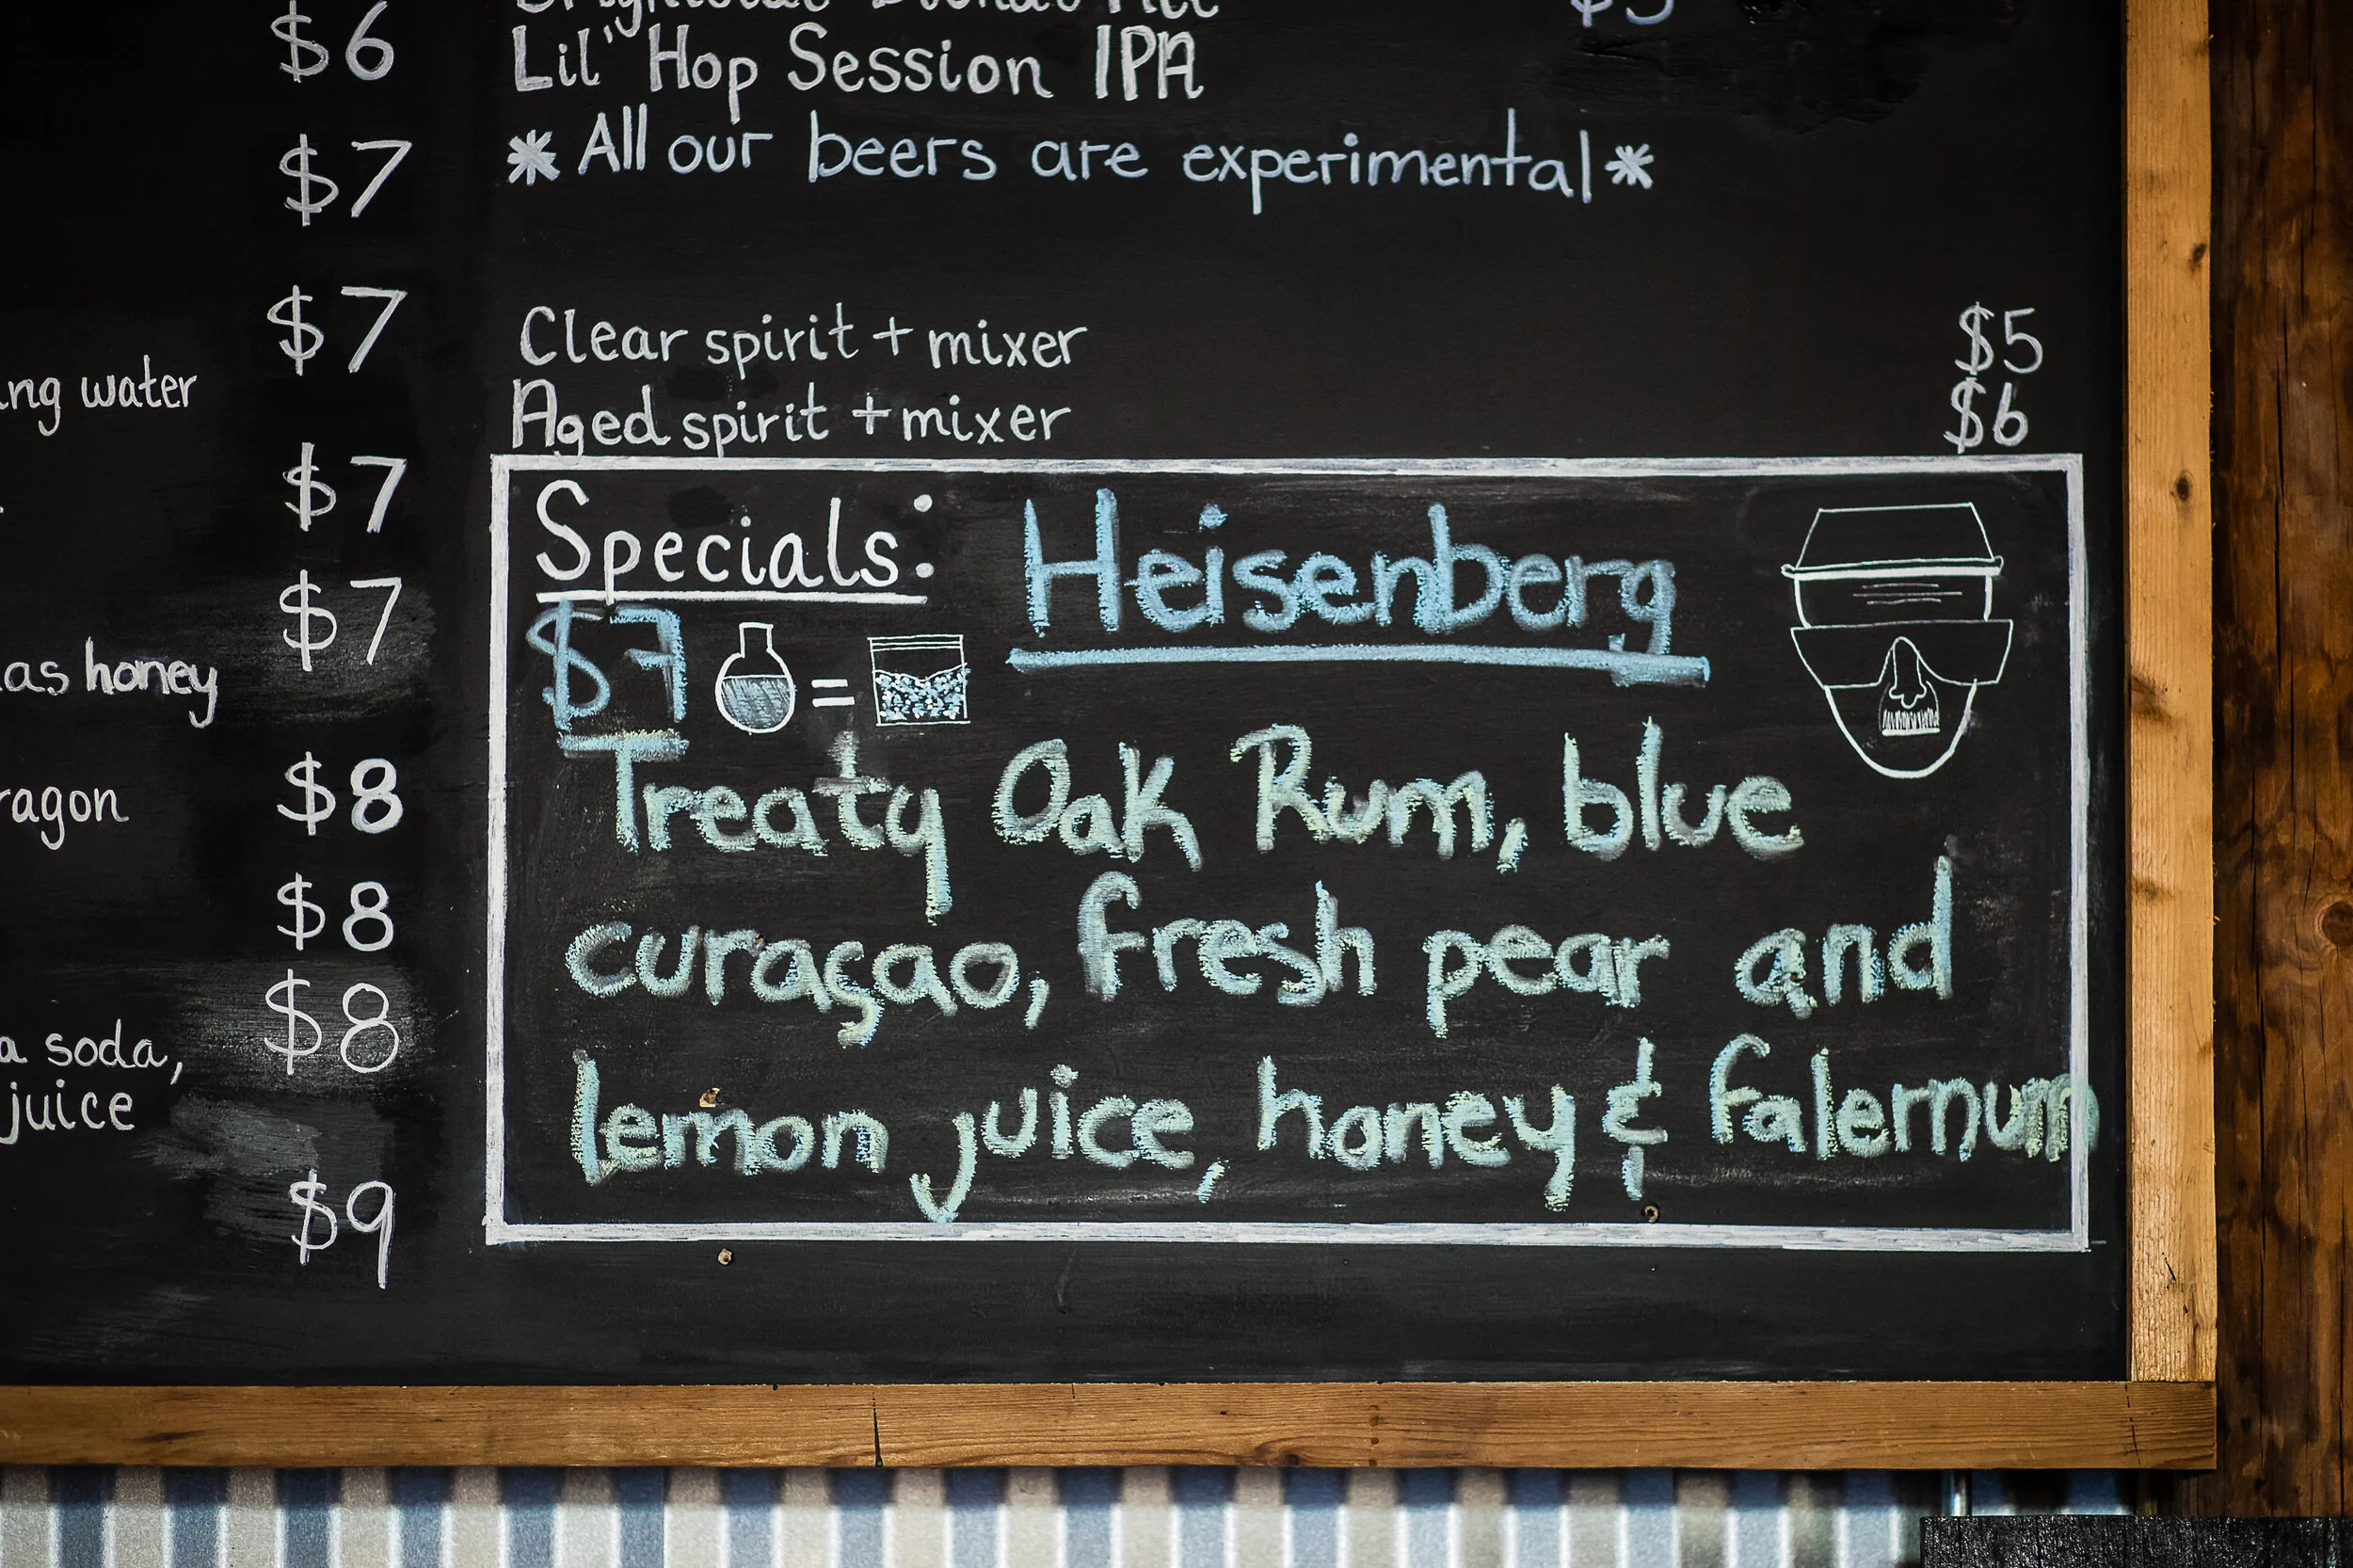 $6
$7
$7
ing water
$7
$7
as honey
$8
ragon
$8
$8
a soda,
juice
$9
Lil' Hop Session IPA
*All our beers are experimental*
Clear spirit + mixer $5
Aged spirit + mixer $6
Specials: Heisenberg
$7 =
Treaty Oak Rum, blue
curaçao, fresh pear and
lemon juice, honey & falernum